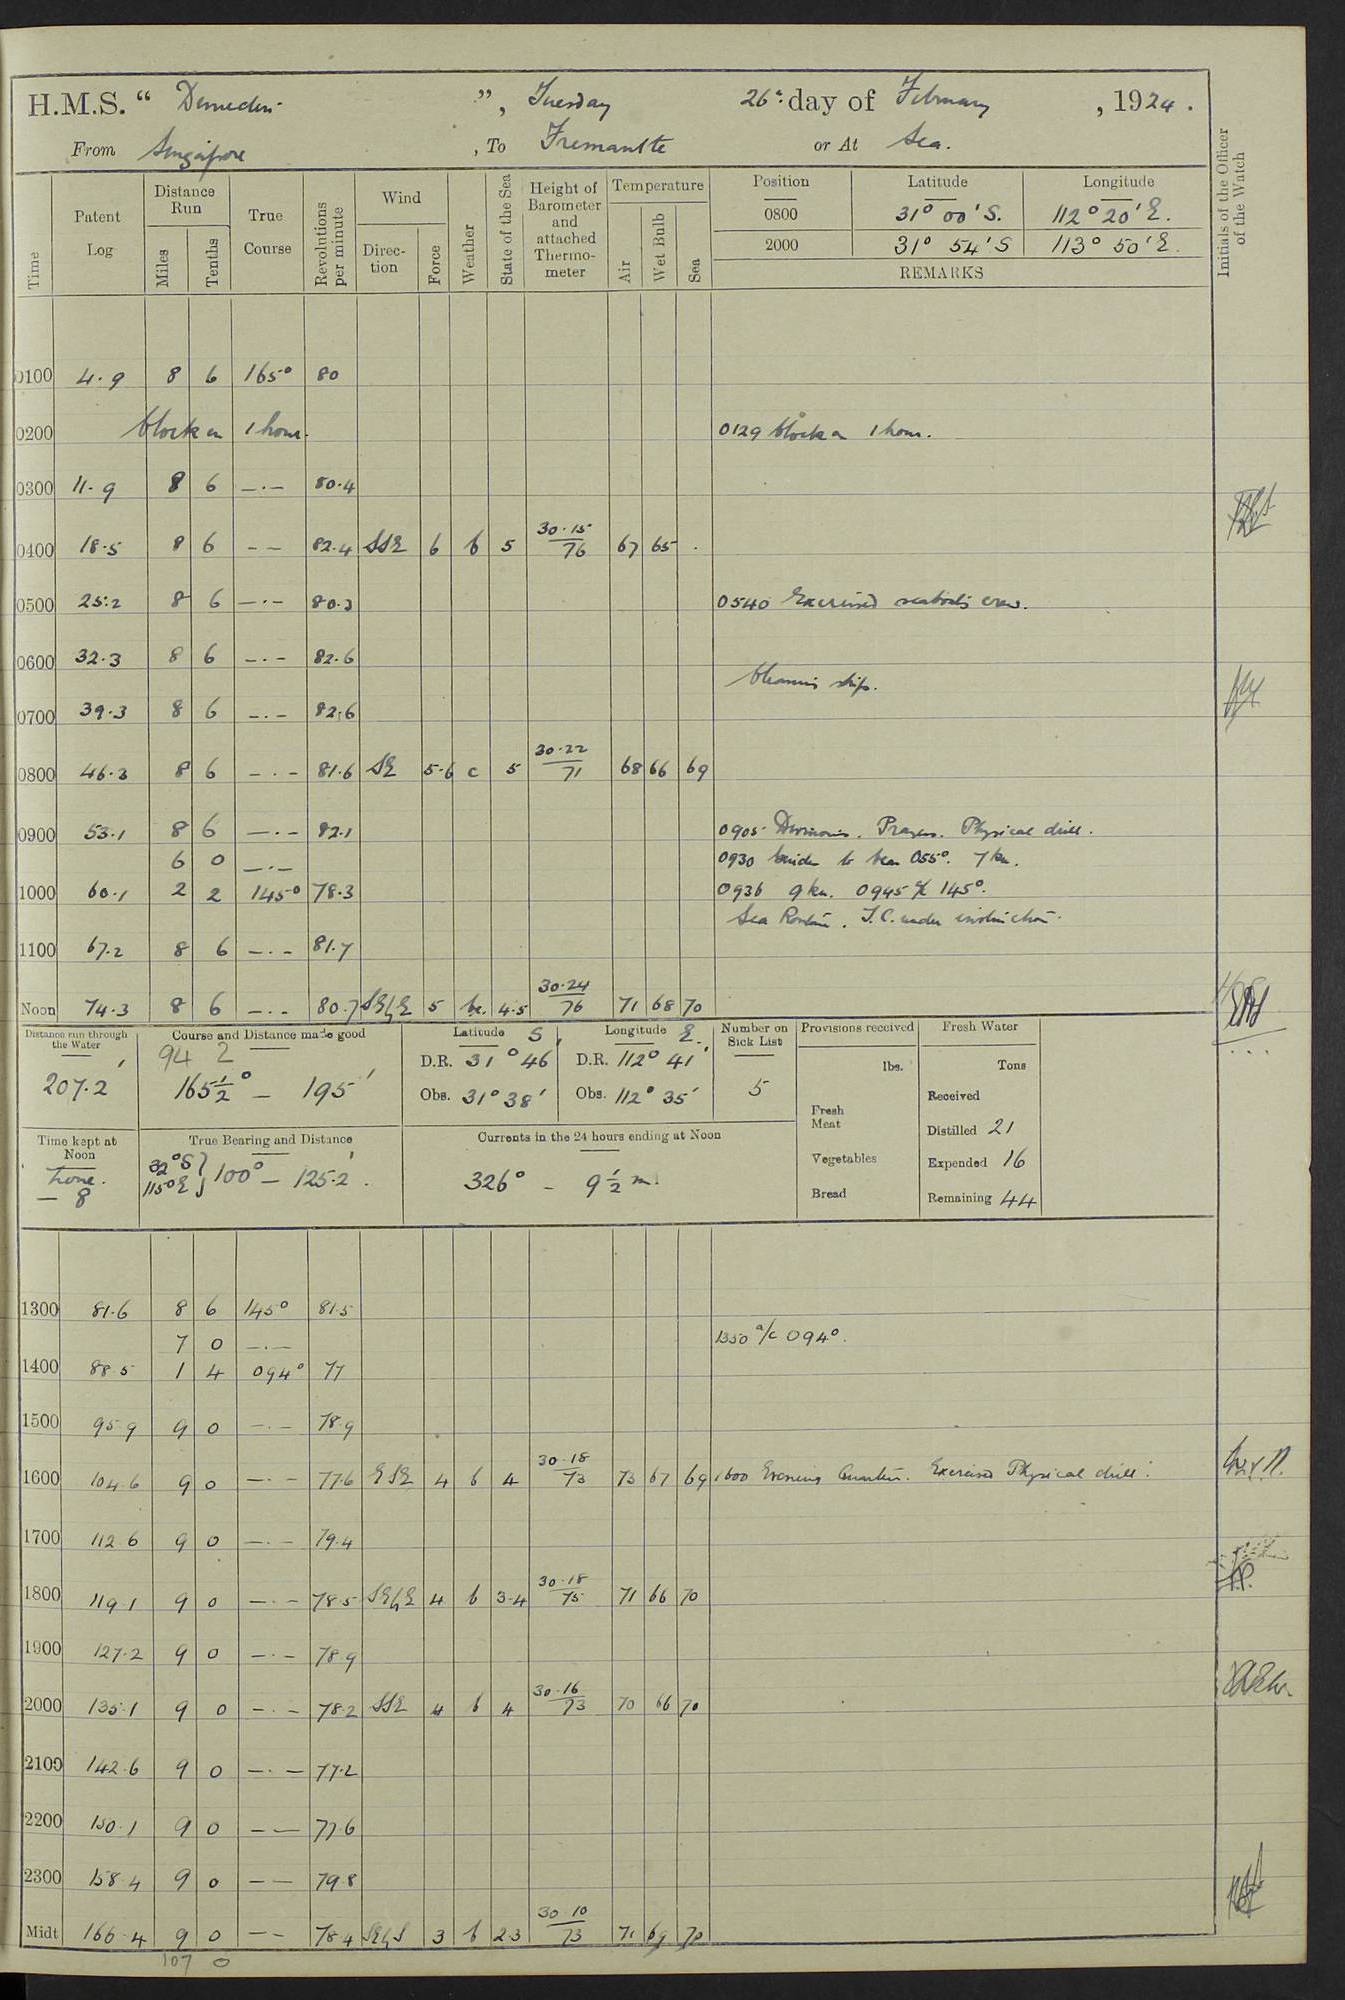 H.M.S. " Dunedin ", Tuesday 26th day of February, 1924.
From Singapore, To Fremantle or At Sea.
Time Patent Log Distance Run Miles Tenths True Course Revolutions per minute Wind Direction Force Weather State of the Sea Height of Barometer and attached Thermometer Temperature Air Wet Bulb Sea
Position Latitude Longitude
0800 31° 00' S. 112° 20' E.
2000 31° 54' S 113° 50' E.
REMARKS
Initials of the Officer of the Watch
0100 4.9 8 6 165° 80
0200 Clock on 1 hour. 0129 Clock on 1 hour.
0300 11.9 8 6 —.— 80.4
0400 18.5 8 6 — — 82.4 SSE 6 b 5 30.15 76 67 65
0500 25.2 8 6 —.— 80.3 0540 Exercised seaboats crew.
0600 32.3 8 6 —.— 82.6
Cleaning ship.
0700 39.3 8 6 —.— 82.6
0800 46.3 8 6 —.— 81.6 SE 5.6 c 5 30.22 71 68 66 69
0900 53.1 8 6 —.— 82.1 0905 Divisions. Prayers. Physical drill.
6 0 —.— 0930 055°. 7 kn.
1000 60.1 2 2 145° 78.3 0936 9 kn. 0945 a/c 145°.
Sea Routine. T.C. under instruction.
1100 67.2 8 6 —.— 81.7
Noon 74.3 8 6 —.— 80.7 SE by E 5 bc. 4.5 30.24 76 71 68 70
Distance run through the Water 207.2'
Course and Distance made good
94 2
165½° — 195'
Latitude S. D.R. 31° 46' Obs. 31° 38'
Longitude E. D.R. 112° 41' Obs. 112° 35'
Number on Sick List 5
Provisions received lbs. Fresh Meat Vegetables Bread
Fresh Water Tons Received Distilled 21 Expended 16 Remaining 44
Time kept at Noon Zone. — 8
True Bearing and Distance 32° S 115° E } 100° — 125.2'.
Currents in the 24 hours ending at Noon 326° - 9½ m.
1300 81.6 8 6 145° 81.5
7 0 —.— 1350 a/c 094°.
1400 88.5 1 4 094° 77
1500 95.9 9 0 —.— 78.9
1600 104.6 9 0 —.— 77.6 ESE 4 b 4 30.18 73 73 67 69 1600 Evening Quarters. Exercised Physical drill.
1700 112.6 9 0 —.— 79.4
1800 119.1 9 0 —.— 78.5 SE by E 4 b 3.4 30.18 75 71 66 70
1900 127.2 9 0 —.— 78.9
2000 135.1 9 0 —.— 78.2 SSE 4 b 4 30.16 73 70 66 70
2100 142.6 9 0 —.— 77.2
2200 150.1 9 0 — — 77.6
2300 158.4 9 0 — — 79.8
Midt 166.4 9 0 — — 78.4 SE by S 3 b 2.3 30.10 73 71 69 70
107 0